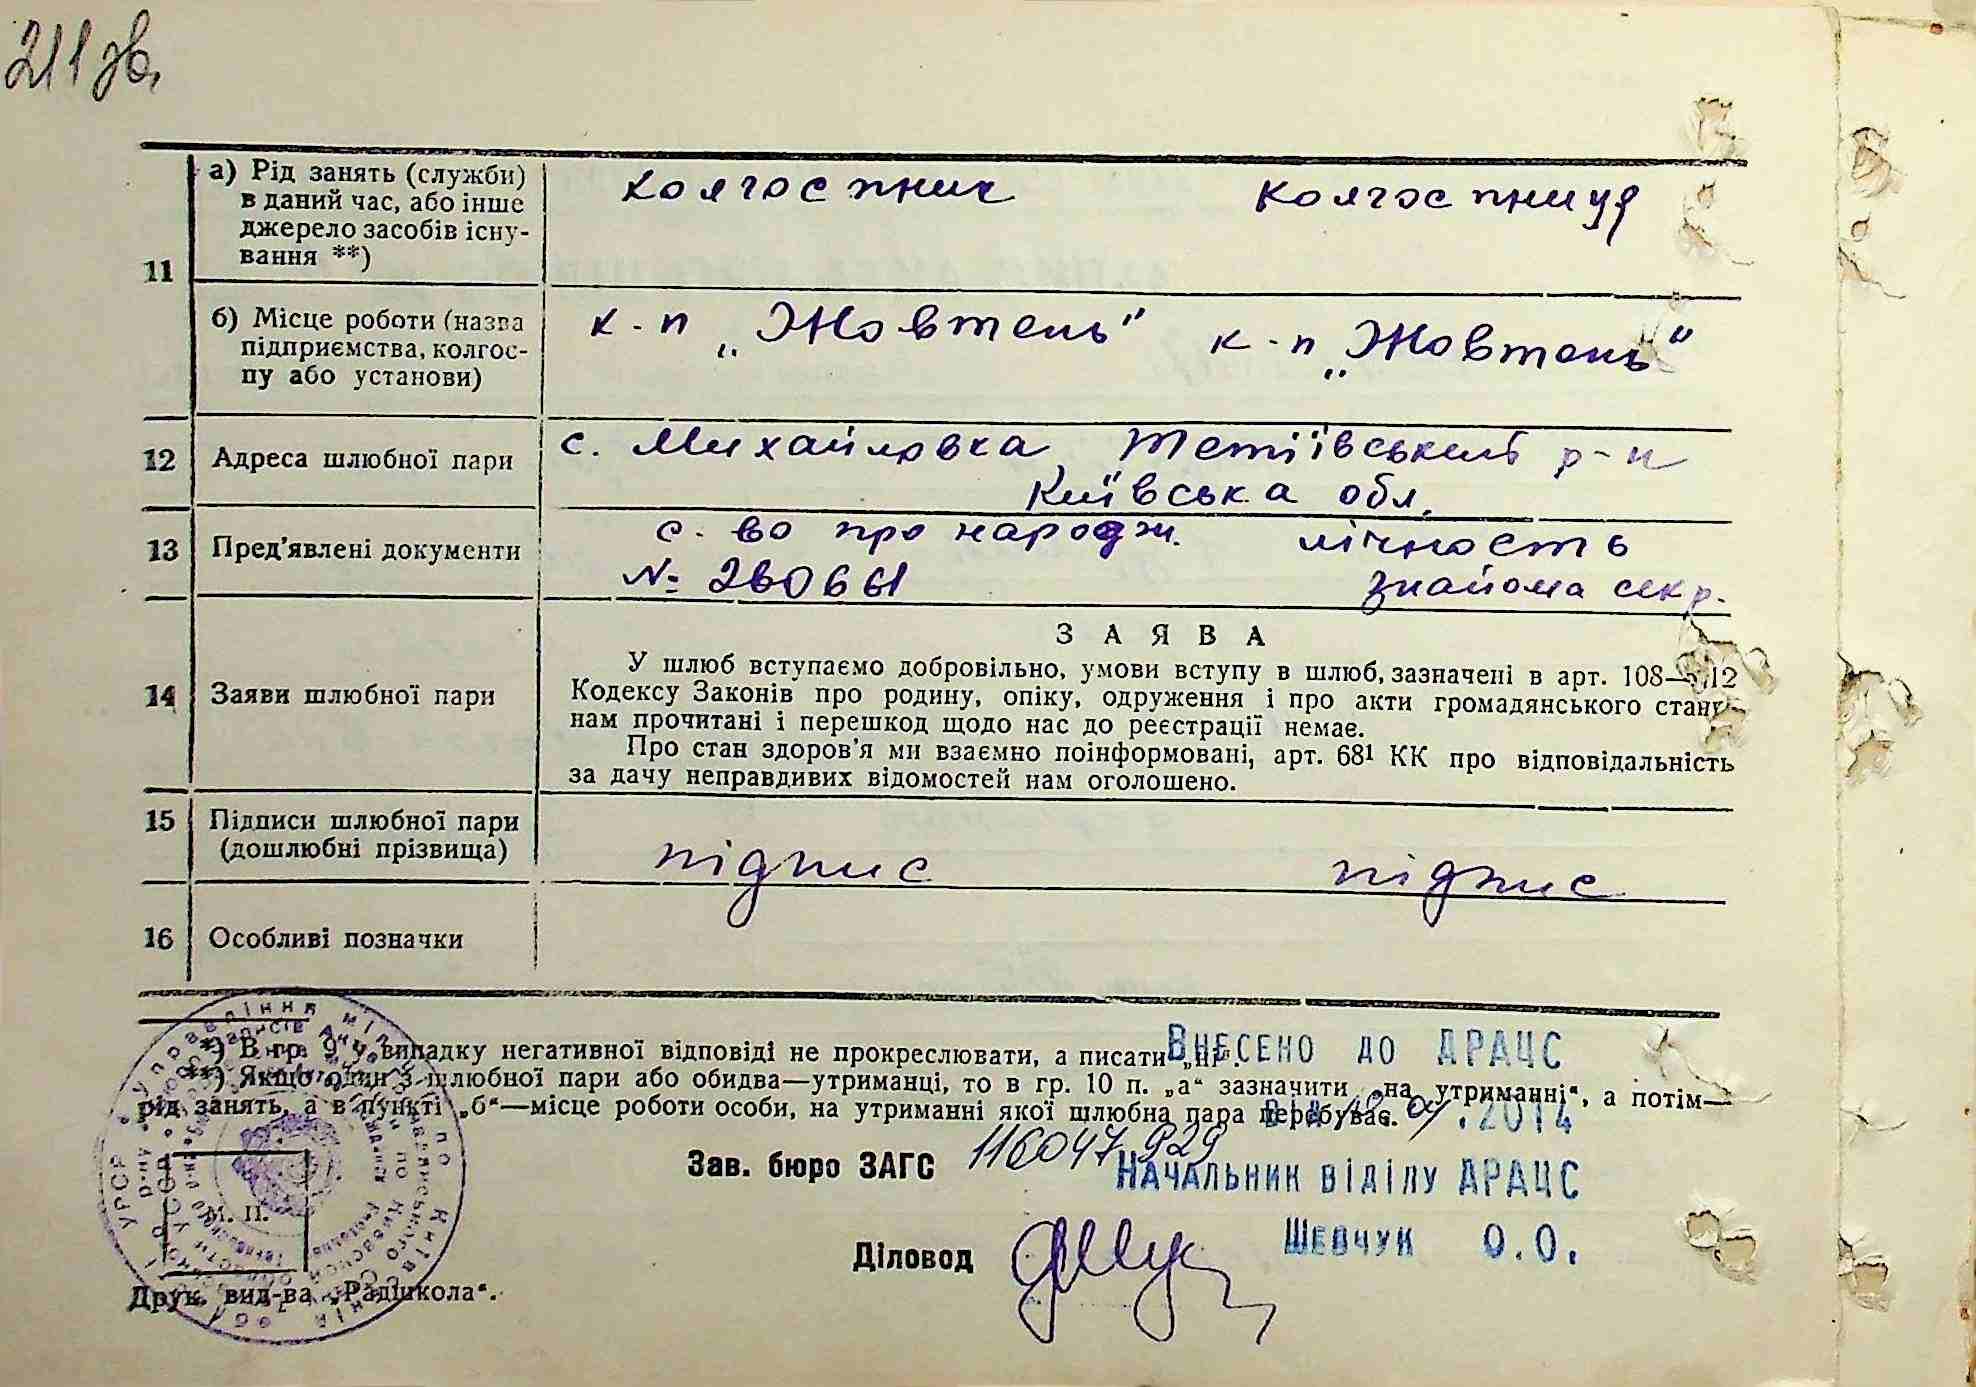 211 зв.
11
а) Рід занять (служби)
в даний час, або інше
джерело засобів існу-
вання **)
колгоспник колгоспниця
б) Місце роботи (назва
підприємства, колгос-
пу або установи)
к-п „Жовтень“ к-п „Жовтень“
12 Адреса шлюбної пари
с. Михайловка Тетіївський р-н
Київська обл.
13 Пред'явлені документи
с-во про народж. лічность
№ 260661 знайома секр.
14 Заяви шлюбної пари
ЗАЯВА
У шлюб вступаємо добровільно, умови вступу в шлюб, зазначені в арт. 108—112
Кодексу Законів про родину, опіку, одруження і про акти громадянського стану
нам прочитані і перешкод щодо нас до реєстрації немає.
Про стан здоров'я ми взаємно поінформовані, арт. 68¹ КК про відповідальність
за дачу неправдивих відомостей нам оголошено.
15 Підписи шлюбної пари
(дошлюбні прізвища)
підпис підпис
16 Особливі позначки
*) В гр. 9 у випадку негативної відповіді не прокреслювати, а писати „ні“.
**) Якщо один з шлюбної пари або обидва—утриманці, то в гр. 10 п. „а“ зазначити „на утриманні“, а потім—
рід занять, а в пункті „б“—місце роботи особи, на утриманні якої шлюбна пара перебуває.
Внесено до ДРАЦС
.2014
Зав. бюро ЗАГС
116047929
Начальник відділу ДРАЦС
Шевчук О.О.
Діловод
М. П.
Друк. вид-ва „Радішкола“.